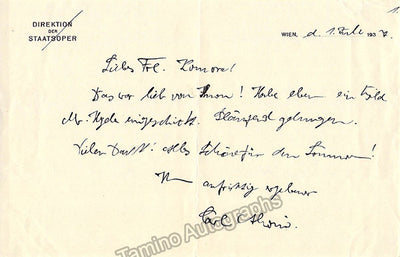 DIREKTION
DER
STAATSOPER
WIEN, d. 1. Juli 193
1.
Liebes Frl. Komora!
Das war lieb von Ihnen! Habe eben ein Bild
Mr. Hyde eingeschickt. Glänzend gelungen.
Vielen Dank! Alles Schöne für den Sommer!
Ihr aufrichtig ergebener
Carl Alwin.
Tamino Autographs